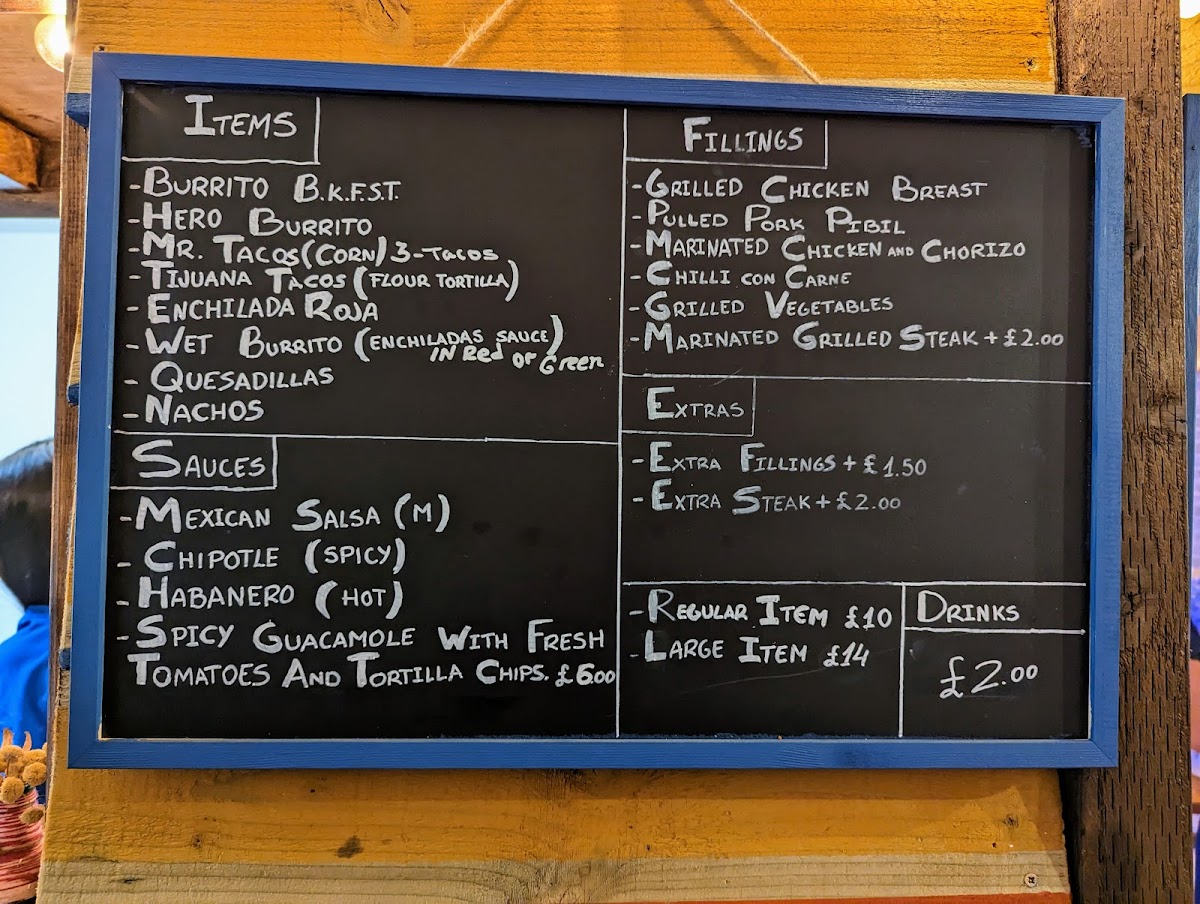 ITEMS
-BURRITO B.K.F.S.T.
-HERO BURRITO
-MR. TACOS (CORN) 3-TACOS
-TIJUANA TACOS (FLOUR TORTILLA)
-ENCHILADA ROJA
-WET BURRITO (ENCHILADAS SAUCE)
IN Red or Green
- QUESADILLAS
-NACHOS
SAUCES
-MEXICAN SALSA (M)
- CHIPOTLE (SPICY)
-HABANERO (HOT)
-SPICY GUACAMOLE WITH FRESH
TOMATOES AND TORTILLA CHIPS. £6.00
FILLINGS
-GRILLED CHICKEN BREAST
-PULLED PORK PIBIL
-MARINATED CHICKEN AND CHORIZO
-CHILLI CON CARNE
-GRILLED VEGETABLES
-MARINATED GRILLED STEAK + £2.00
EXTRAS
-EXTRA FILLINGS + £1.50
-EXTRA STEAK + £2.00
-REGULAR ITEM £10
-LARGE ITEM £14
DRINKS
£2.00